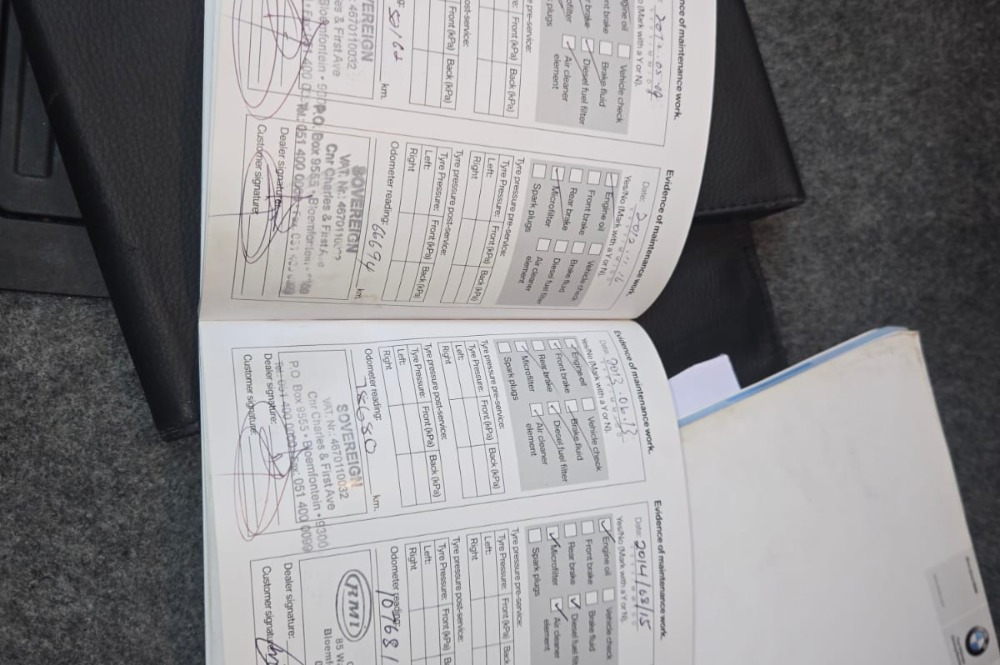 nce of maintenance work.
2012.05.
o (Mark with a Y or N).
ngine oil Vehicle check
ont brake Brake fluid
r brake Diesel fuel filter
ofilter Air cleaner
k plugs element
e pre-service:
e: Front (kPa) Back (kPa)
ost-service:
Front (kPa) Back (kPa)
km.
VEREIGN
4670110032
es & First Ave
Bloemfontein
Evidence of maintenance work.
Date: 2012
Yes/No (Mark with a Y or N).
Engine oil Vehicle check
Front brake Brake fluid
Rear brake Diesel fuel filter
Microfilter Air cleaner
Spark plugs element
Tyre pressure pre-service:
Tyre Pressure: Front (kPa) Back (kPa)
Left:
Right
Tyre pressure post-service:
Tyre Pressure: Front (kPa) Back (kPa)
Left:
Right
Odometer reading: 66694 km.
SOVEREIGN
VAT. Nr. 4670110032
Cnr Charles & First
P.O. Box 9555 • Bloemfontein
Tel: 051 400
Dealer signature:
Customer signature:
Evidence of maintenance work.
Date: 2013.06.13
Yes/No (Mark with a Y or N).
Engine oil Vehicle check
Front brake Brake fluid
Rear brake Diesel fuel filter
Microfilter Air cleaner
Spark plugs element
Tyre pressure pre-service:
Tyre Pressure: Front (kPa) Back (kPa)
Left:
Right
Tyre pressure post-service:
Tyre Pressure: Front (kPa) Back (kPa)
Left:
Right
Odometer reading: 78680 km.
SOVEREIGN
VAT Nr: 4670110032
Cnr Charles & First Ave
P.O. Box 9555 • Bloemfontein • 9300
Tel: 051 400 0000 Fax: 051 400 0099
Dealer signature:
Customer signature:
Evidence of maintenance work.
Date: 2014/08/15
Yes/No (Mark with a Y or N).
Engine oil Vehicle check
Front brake Brake fluid
Rear brake Diesel fuel fil
Microfilter Air cleaner
Spark plugs element
Tyre pressure pre-service:
Tyre Pressure: Front (kPa) Back
Left:
Right
Tyre pressure post-service:
Tyre Pressure: Front (kPa) B
Left:
Right
Odometer reading: 107681
RMI
85 W
Bloemf
Dealer signature:
Customer signature:
BMW